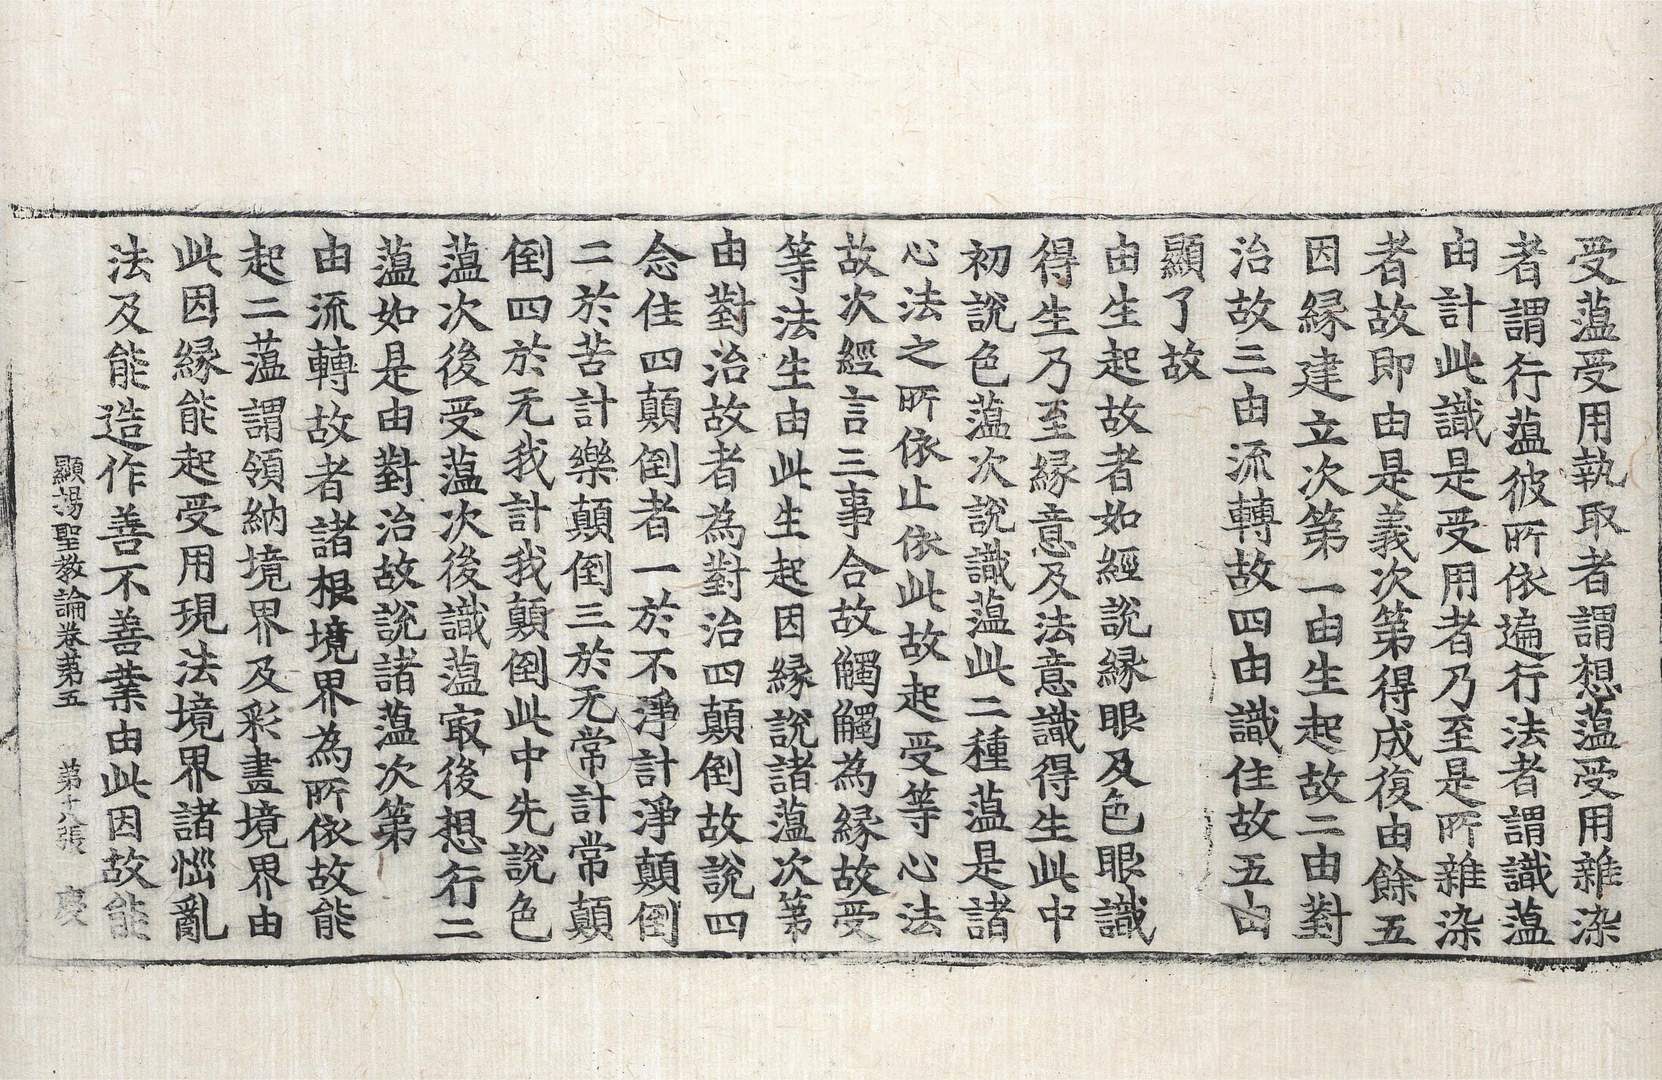 受蘊受用執取者謂想蘊受用雜染
者謂行蘊彼所依遍行法者謂識蘊
由計此識是受用者乃至是所雜染
者故即由是義次第得成復由餘五
因縁建立次第一由生起故二由對
治故三由流轉故四由識住故五由
顯了故
由生起故者如經說縁眼及色眼識
得生乃至縁意及法意識得生此中
初說色蘊次說識蘊此二種蘊是諸
心法之所依止依此故起受等心法
故次經言三事合故觸觸為縁故受
等法生由此生起因縁說諸蘊次第
由對治故者為對治四顛倒故說四
念住四顛倒者一於不淨計淨顛倒
二於苦計樂顛倒三於无常計常顛
倒四於无我計我顛倒此中先說色
蘊次後受蘊次後識蘊㝡後想行二
蘊如是由對治故說諸蘊次第
由流轉故者諸根境界為所依故能
起二蘊謂領納境界及彩畫境界由
此因縁能起受用現法境界諸惱亂
法及能造作善不善業由此因故能
顯揚聖教論卷第五 第十八張 慶